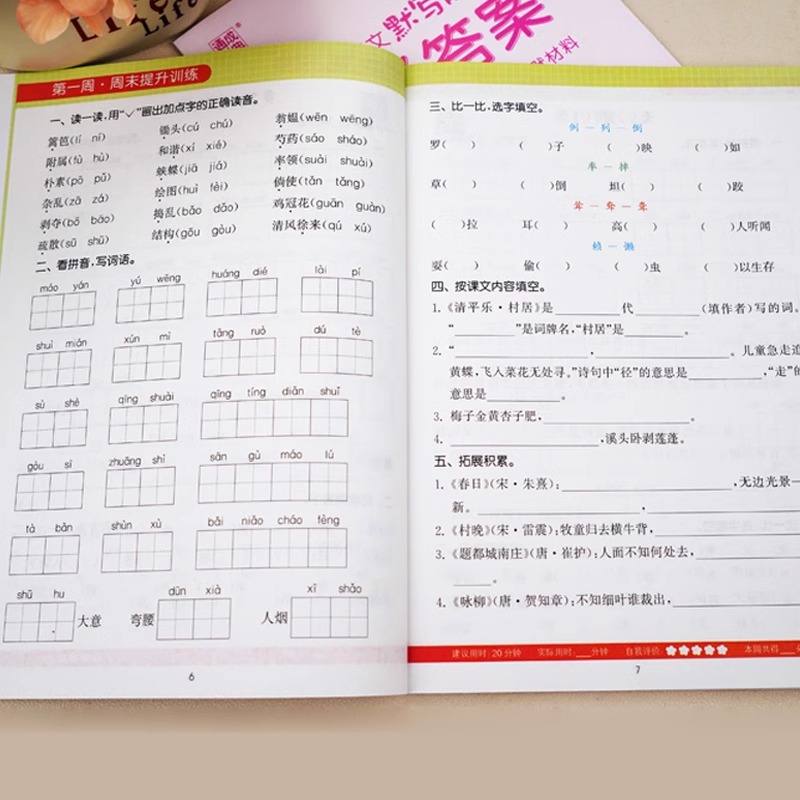 Life
Life
通成
文默写
答案
材料
第一周·周末提升训练
一、读一读，用“✓”画出加点字的正确读音。
篱笆(lí ní) 锄头(cú chú) 翁媪(wēn wēng)
附属(fù hù) 和谐(xí xié) 芍药(sáo sháo)
朴素(pō pǔ) 蛱蝶(jiā jiá) 率领(suài shuài)
杂乱(zā zá) 绘图(huì fèi) 倘使(tǎn tǎng)
剥夺(bō bāo) 捣乱(bǎo dǎo) 鸡冠花(guān guàn)
疏散(sū shū) 结构(gōu gòu) 清风徐来(qú xú)
二、看拼音，写词语。
máo yán yú wēng huáng dié lài pí
shuì mián xún mì tǎng ruò dú tè
sù shè qīng shuài qīng tíng diǎn shuǐ
gòu sī zhuāng shì sān gù máo lú
tà bǎn shùn xù bǎi niǎo cháo fèng
shū hu dūn xià xī shǎo
大意 弯腰 人烟
6
三、比一比，选字填空。
例—列—倒
罗( ) ( )子 ( )映 ( )如
率—摔
草( ) ( )倒 坦( ) ( )跤
耸—耷—聋
( )拉 耳( ) 高( ) ( )人听闻
赖—懒
耍( ) 偷( ) ( )虫 ( )以生存
四、按课文内容填空。
1.《清平乐·村居》是______代______(填作者)写的词。
“______”是词牌名，“村居”是______。
2.“______，______。儿童急走追
黄蝶，飞入菜花无处寻。”诗句中“径”的意思是______，“走”的
意思是______。
3. 梅子金黄杏子肥，______。
4. ______，溪头卧剥莲蓬。
五、拓展积累。
1.《春日》(宋·朱熹)：______，无边光景一
新。______，______
2.《村晚》(宋·雷震)：牧童归去横牛背，______
3.《题都城南庄》(唐·崔护)：人面不知何处去，______
______。
4.《咏柳》(唐·贺知章)：不知细叶谁裁出，______
建议用时：20分钟 实际用时：___分钟 自我评价： 本周共得___
7